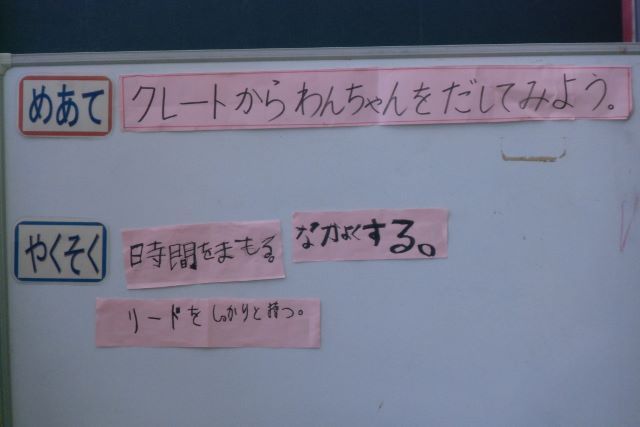 めあて
クレートからわんちゃんをだしてみよう。
やくそく
時間をまもる。
なかよくする。
リードをしっかりと持つ。